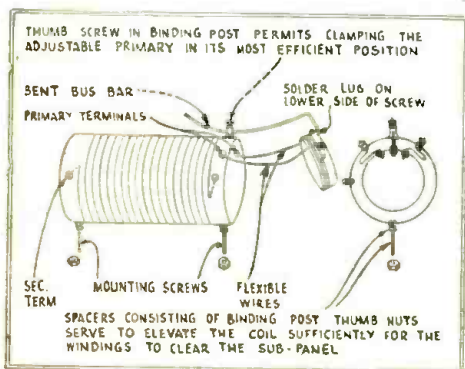 THUMB SCREW IN BINDING POST PERMITS CLAMPING THE
ADJUSTABLE PRIMARY IN ITS MOST EFFICIENT POSITION
BENT BUS BAR
PRIMARY TERMINALS
SOLDER LUG ON
LOWER SIDE OF SCREW
SEC.
TERM
MOUNTING SCREWS
FLEXIBLE
WIRES
SPACERS CONSISTING OF BINDING POST THUMB NUTS
SERVE TO ELEVATE THE COIL SUFFICIENTLY FOR THE
WINDINGS TO CLEAR THE SUB-PANEL